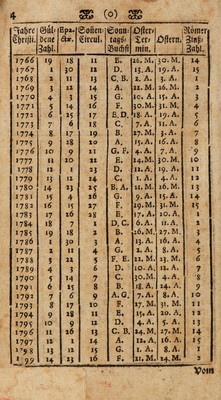 4 (o)
Jahre Christi. Gül- dene Zahl. Epa- ctæ. Sonen Circul. Sonn- tags- Buchst. Oster- Ter- min. Ostern. Römer Zinß- Zahl.
1766 19 18 11 E. 26. M. 30. M. 14
1767 1 30 12 D. 13. A. 19. A. 15
1768 2 11 13 C. B. 2. A. 3. A. 1
1769 3 22 14 A. 22. M. 26. M. 2
1770 4 3 15 G. 10. A. 15. A. 3
1771 5 14 16 F. 30. M. 31. M. 4
1772 6 25 17 E. D. 18. A. 19. A. 5
1773 7 6 18 C. 7. A. 11. A. 6
1774 8 17 19 B. 27. M. 3. A. 7
1775 9 28 20 A. 15. A. 16. A. 8
1776 10 9 21 G. F. 4. A. 7. A. 9
1777 11 20 22 E. 24. M. 30. M. 10
1778 12 1 23 D. 12. A. 19. A. 11
1779 13 12 24 C. 1. A. 4. A. 12
1780 14 23 25 B. A. 21. M. 26. M. 13
1781 15 4 26 G. 9. A. 15. A. 14
1782 16 15 27 F. 29. M. 31. M. 15
1783 17 26 28 E. 17. A. 20. A. 1
1784 18 7 1 D. C. 6. A. 11. A. 2
1785 19 18 2 B. 26. M. 27. M. 3
1786 1 30 3 A. 13. A. 16. A. 4
1787 2 11 4 G. 2. A. 8. A. 5
1788 3 22 5 F. E. 22. M. 23. M. 6
1789 4 3 6 D. 10. A. 12. A. 7
1790 5 14 7 C. 30. M. 4. A. 8
1791 6 25 8 B. 18. A. 24. A. 9
1792 7 6 9 A. G. 7. A. 8. A. 10
1793 8 17 10 F. 27. M. 31. M. 11
1794 9 28 11 E. 15. A. 20. A. 12
1795 10 9 12 D. 4. A. 5. A. 13
1796 11 20 13 C. B. 24. M. 27. M. 14
1797 12 1 14 A. 12. A. 16. A. 15
1798 13 12 15 G. 1. A. 8. A. 1
1799 14 23 16 F. 21. M. 24. M. 2
Vom